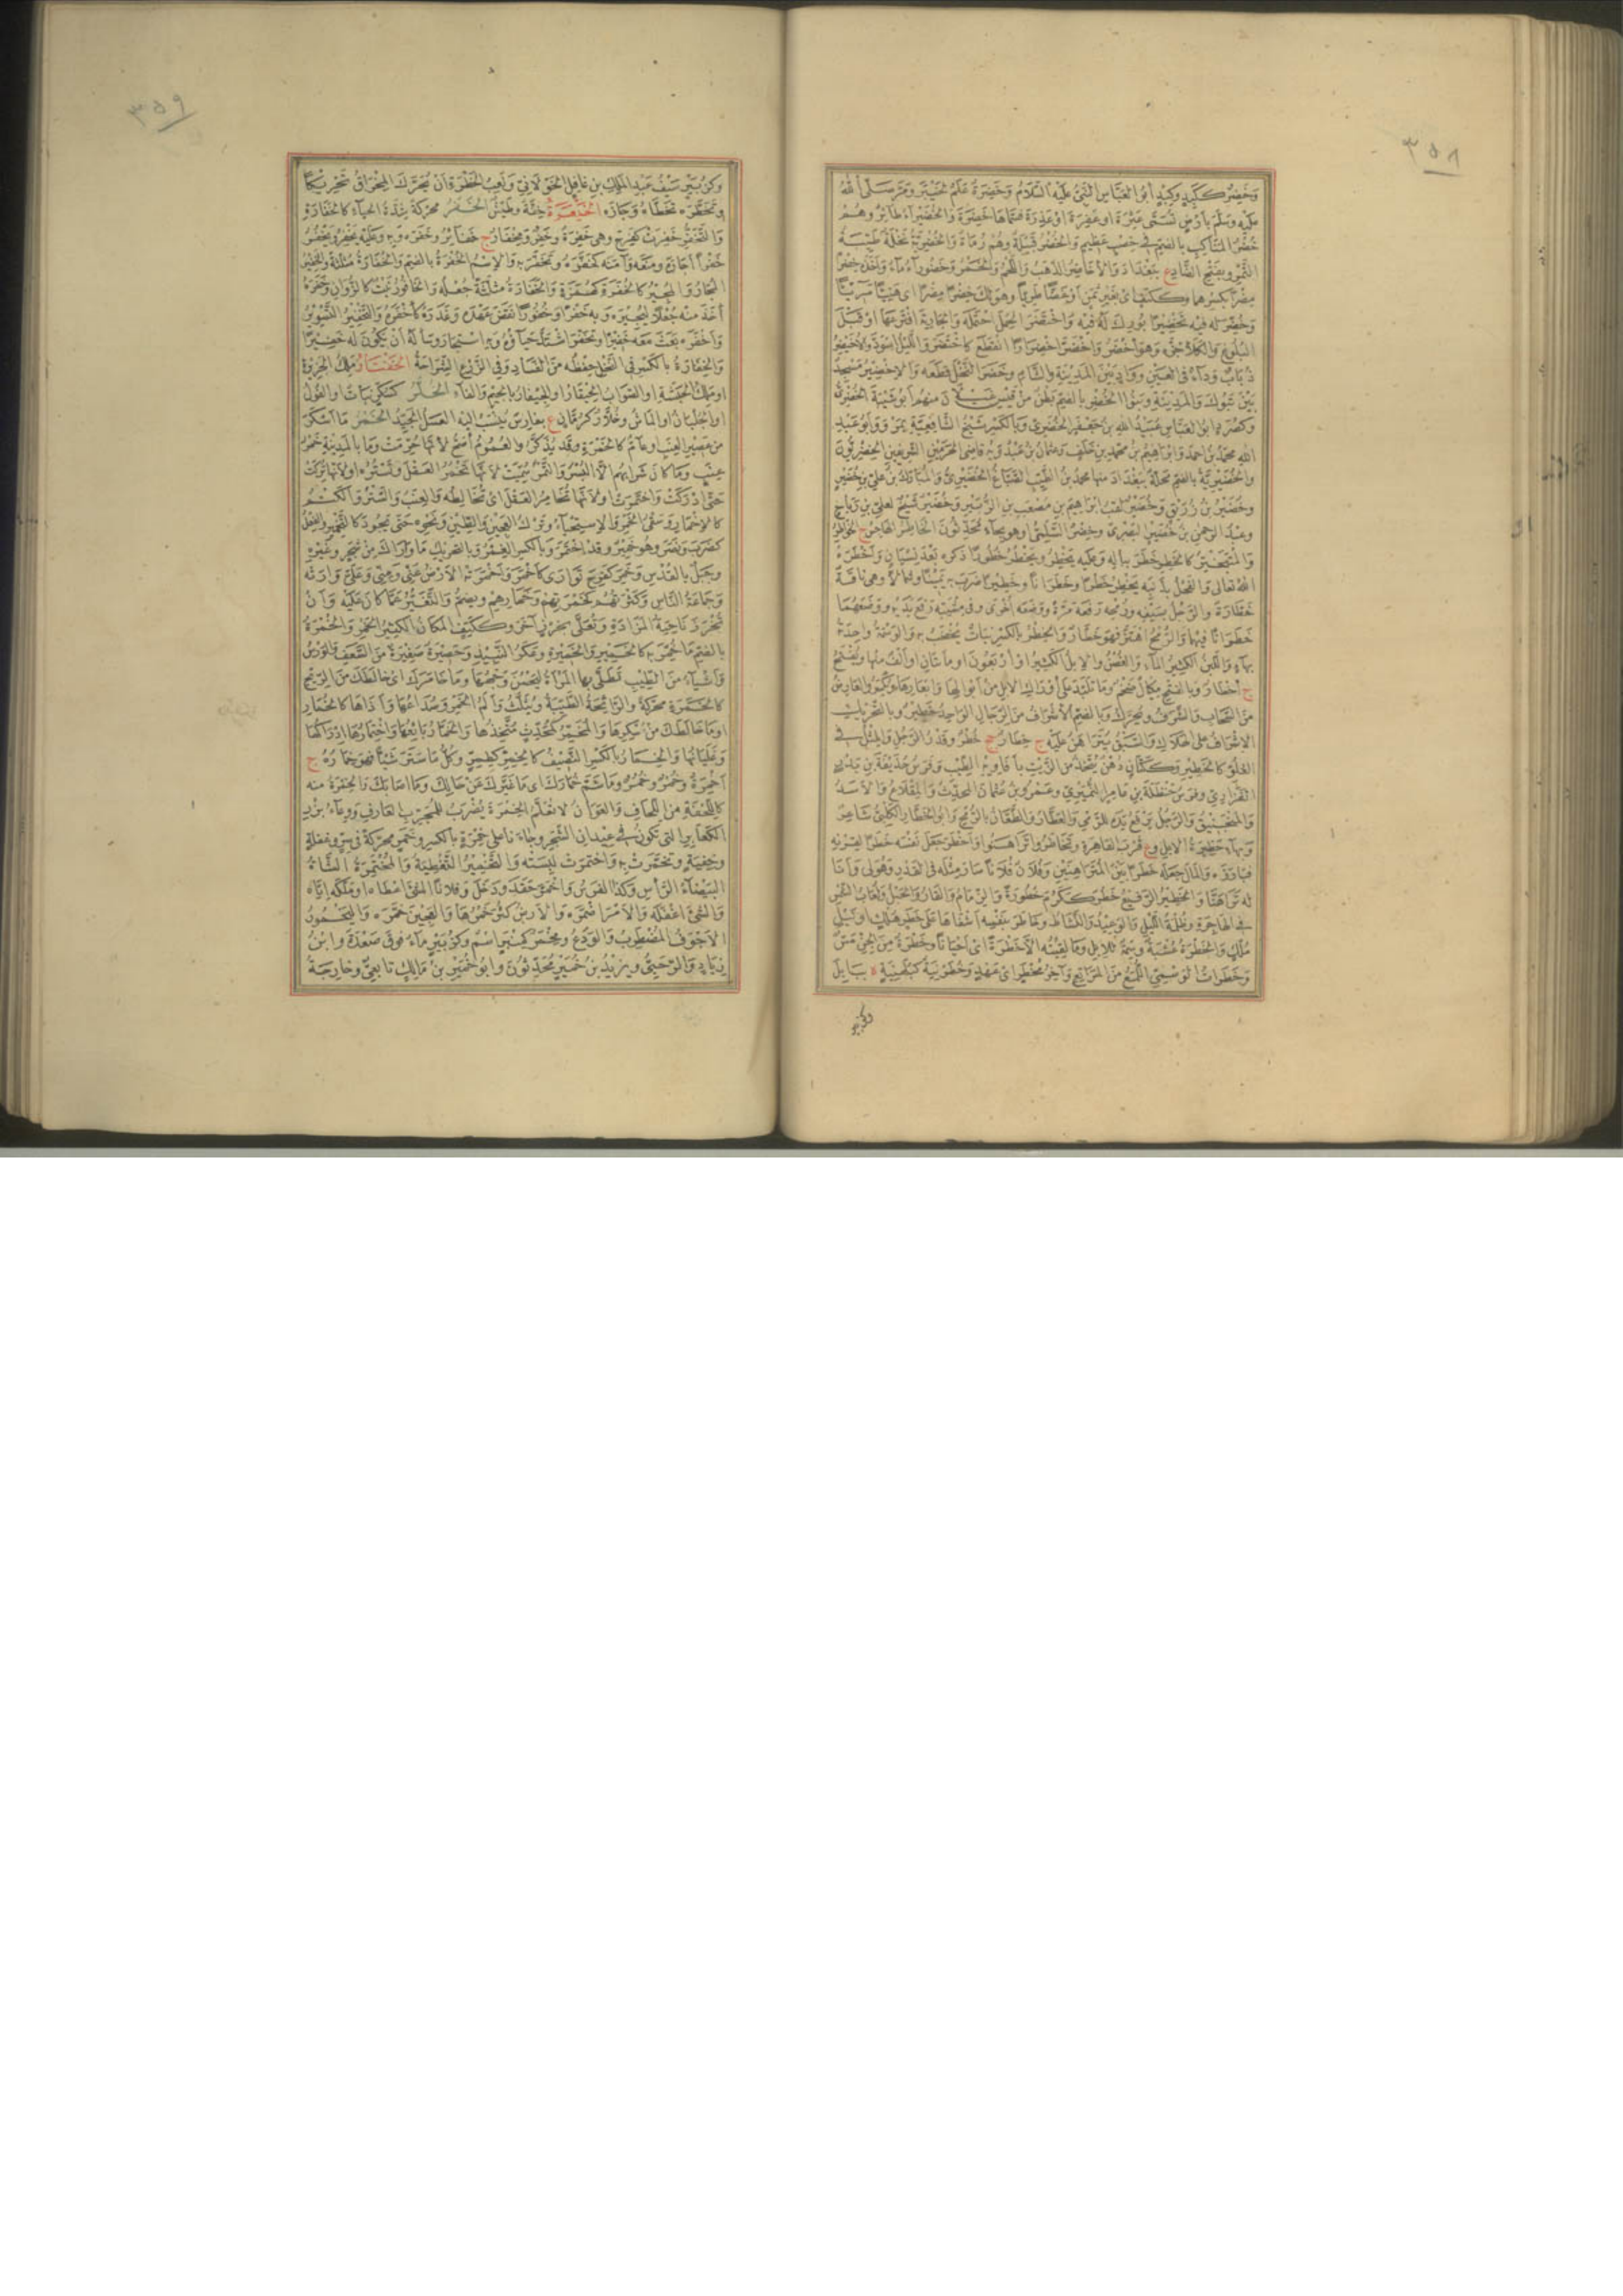 ٣٥٨
وَخَضِرٌ ككَبِدٍ وكِبْدٍ أبُو العَبَّاسِ النَّبِيُّ عَلَيْهِ السَّلَامُ وخَضِرَةُ عَلَمٌ لخَيْبَرَ ومَرَّ صَلَّى اللهُ
عَلَيْهِ وسَلَّمَ بأرْضٍ تُسَمَّى عَثِرَةَ أو عَفِرَةَ أو غَدِرَةَ فسَمَّاها خَضِرَةَ والخُضَيْرَاءُ طائِرٌ وهُمْ
خُضْرُ المَنَاكِبِ بالضم في خِصْبٍ عَظِيمٍ والخُضْرُ قَبِيلَةٌ وهُمْ رُمَاةٌ والخُضْرِيَّةُ نَخْلَةٌ طَيِّبَةُ
التَّمْرِ وبفَتْحِ الضَّادِ ع ببَغْدَادَ والأَخَاضِرُ الذَّهَبُ واللَّحْمُ والخَمْرُ وخَضُورَاءُ مَاءٌ وأخَذَهُ خِضْرًا
مِضْرًا بكسرهما وككَتِفٍ أي بغَيْرِ ثَمَنٍ أو غَضًّا طَرِيًّا وهو لَكَ خِضْرًا مِضْرًا أي هَنِيئًا مَرِيئًا
وخُضِّرَ له فيه تَخْضِيرًا بُورِكَ لَهُ فيه واخْتَضَرَ الحِمْلَ احْتَمَلَهُ والجَارِيَةَ افْتَرَعَهَا أو قَبْلَ
البُلُوغِ والكَلَأَ جَزَّهُ وهو أخْضَرُ واخْضَرَّ اخْضِرَارًا انْقَطَعَ كاخْتُضِرَ واللَّيْلُ اسْوَدَّ والأُخَيْضِرُ
ذُبَابٌ ودَاءٌ في العَيْنِ ووَادٍ بَيْنَ المَدِينَةِ والشَّامِ وخَضَرَ النَّخْلَ قَطَعَهُ والإِخْضِيرُ مَسْجِدٌ
بَيْنَ تَبُوكَ والمَدِينَةِ وبَنُو الخُضْرِ بالضم بَطْنٌ مِنْ قَيْسِ عَيْلَانَ منهم أبُو شَيْبَةَ الخُضْرِيُّ
الله محمَّدُ بنُ أحمدَ وإبْرَاهِيمُ بنُ محمَّدِ بنِ خَلَفٍ وعثمانُ بنُ عَبْدَوَيْهِ قاضي الحَرَمَيْنِ الشريفين الخِضْرِيُّونَ
والخُضَيْرِيَّةُ بالضم مَحَلَّةٌ ببَغْدَادَ منها محمدُ بنُ الطَّيِّبِ الصَّبَّاغُ الخُضَيْرِيُّ والمُبَارَكُ بنُ عَلِيِّ بنِ خُضَيْرٍ
وخُضَيْرُ بنُ زُرَيْقٍ وخُضَيْرٌ لَقَبُ إبْرَاهِيمَ بنِ مُصْعَبِ بنِ الزُّبَيْرِ وخُضَيْرٌ شَيْخٌ لعَلِيِّ بنِ رَبَاحٍ
وعَبْدُ الرَّحْمَنِ بنُ خُضَيْرٍ البَصْرِيُّ وخِضْرٌ السُّلَمِيُّ وهو بهاءٍ مُحَدِّثُونَ الخَاطِرُ الهَاجِسُ ج الخَوَاطِرُ
والمُتَبَخْتِرُ كالخَطِرِ خَطَرَ ببَالِهِ وعليه يَخْطِرُ ويَخْطُرُ خُطُورًا ذَكَرَهُ بَعْدَ نِسْيَانٍ وأَخْطَرَهُ
اللهُ تعالى والفَحْلُ بذَنَبِهِ يَخْطِرُ خَطْرًا وخَطَرَانًا وخَطِيرًا ضَرَبَ به يَمِينًا وشِمَالًا وهي نَاقَةٌ
خَطَّارَةٌ والرَّجُلُ بسَيْفِهِ ورُمْحِهِ رَفَعَهُ مَرَّةً ووَضَعَهُ أُخْرَى وفي مِشْيَتِهِ رَفَعَ يَدَيْهِ ووَضَعَهُمَا
خَطَرَانًا فيهما والرُّمْحُ اهْتَزَّ فهو خَطَّارٌ والخِطْرُ بالكسر نَبَاتٌ يُخْتَضَبُ به والوَسْمَةُ واحِدَتُهُ
بهاءٍ واللَّبَنُ الكَثِيرُ الماءِ والغُصْنُ والإِبِلُ الكَثِيرُ أو أرْبَعُونَ أو مِائَتَانِ أو ألْفٌ منها ويُفْتَحُ
ج أخْطَارٌ وبالفتح مِكْيَالٌ ضَخْمٌ وما تَلَبَّدَ على أوْرَاكِ الإبِلِ مِنْ أبْوَالِهَا وأبْعَارِهَا ويُكْسَرُ والعَارِضُ
مِنَ السَّحَابِ والشَّرَفُ ويُحَرَّكُ وبالضم الأَشْرَافُ مِنَ الرِّجَالِ الوَاحِدُ خَطِيرٌ وبالتَّحْرِيكِ
الإشْرَافُ على الهَلَاكِ والسَّبَقُ يُتَرَاهَنُ عليه ج خِطَارٌ جج خُطُرٌ وقَدْرُ الرَّجُلِ والمِثْلُ في
العُلُوِّ كالخَطِيرِ وككَتَّانٍ دُهْنٌ يُتَّخَذُ مِنَ الزَّيْتِ بأفَاوِيهِ الطِّيبِ وفَرَسُ حُذَيْفَةَ بنِ بَدْرٍ
الفَزَارِيِّ وفَرَسُ حَنْظَلَةَ بنِ عَامِرٍ النُّمَيْرِيِّ وعَمْرُو بنُ عُثْمَانَ المُحَدِّثُ والمِقْلَاعُ والأَسَدُ
والمَنْجَنِيقُ والرَّجُلُ يَرْفَعُ يَدَهُ للرَّمْيِ والعَطَّارُ والطَّعَّانُ بالرُّمْحِ وأبُو الخَطَّارِ الكَلْبِيُّ شَاعِرٌ
وبهاءٍ حَظِيرَةُ الإبِلِ وع قُرْبَ القَاهِرَةِ وتَخَاطَرُوا تَرَاهَنُوا وأَخْطَرَ جَعَلَ نَفْسَهُ خَطَرًا لقِرْنِهِ
فبَارَزَهُ والمَالَ جَعَلَهُ خَطَرًا بَيْنَ المُتَرَاهِنِينَ وفُلَانٌ فُلَانًا صَارَ مِثْلَهُ في القَدْرِ وهُوَ لِي وأنَا
لَهُ تَرَاهَنَّا والخَطِيرُ الرَّفِيعُ خَطُرَ ككَرُمَ خُطُورَةً والزِّمَامُ والقَارُ والحَبْلُ ولُعَابُ الشَّمْسِ
في الهَاجِرَةِ وظُلْمَةُ اللَّيْلِ والوَعِيدُ والنَّشَاطُ وخَاطَرَ بنَفْسِهِ أشْفَاهَا على خَطَرِ هُلْكٍ أو نَيْلِ
مُلْكٍ والخِطْرَةُ عُشْبَةٌ وسِمَةٌ للإبِلِ وما لَقِيتُهُ إلَّا خَطْرَةً أي أحْيَانًا وخَطْرَةٌ مِنَ الجِنِّ مَسٌّ
وخَطَرَاتُ الوَسْمِيِّ اللُّمَعُ مِنَ المَرَاتِعِ وآخِرُ مَخْطَرٍ أي عَهْدٍ وخُطَرْنِيَةُ كبُلَهْنِيَةٍ ة ببَابِلَ
وكزبير
٣٥٩
وكزُبَيْرٍ سَيْفُ عَبْدِ المَلِكِ بنِ غَافِلٍ الخَوْلَانِيِّ ولَعِبُ الخَطْرَةِ أنْ يُحَرَّكَ المِخْرَاقُ تَحْرِيكًا
وتَخَطَّرَهُ تَخَطَّاهُ وجَازَهُ خِفَّةٌ وطَيْشٌ الخَفَرُ محرَّكةً شِدَّةُ الحَيَاءِ كالخَفَارَةِ
والتَّخَفُّرِ خَفِرَتْ كفَرِحَ وهي خَفِرَةٌ وخَفِرٌ ومِخْفَارٌ ج خَفَائِرُ وخَفَرَهُ وبه وعليه يَخْفِرُ ويَخْفُرُ
خَفْرًا أجَارَهُ ومَنَعَهُ وآمَنَهُ كخَفَّرَهُ وتَخَفَّرَ به والإسْمُ الخُفْرَةُ بالضم والخُفَارَةُ مُثَلَّثَةً والخَفِيرُ
المُجَارُ والمُجِيرُ كالخُفَرَةِ كهُمَزَةٍ والخُفَارَةُ مثلَّثةً جُعْلُهُ والخَافُورُ نَبْتٌ كالزُّوَانِ وخَفَرَهُ
أخَذَ مِنْهُ جُعْلًا ليُجِيرَهُ وبه خَفْرًا وخُفُورًا نَقَضَ عَهْدَهُ وغَدَرَهُ كأَخْفَرَهُ والتَّخْفِيرُ التَّسْوِيرُ
وأَخْفَرَهُ بَعَثَ مَعَهُ خَفِيرًا وتَخَفَّرَ اشْتَدَّ حَيَاؤُهُ وبه اسْتَجَارَ وسَأَلَهُ أنْ يَكُونَ لَهُ خَفِيرًا
والخِفَارَةُ بالكسر في النَّخْلِ حِفْظُهُ مِنَ الفَسَادِ وفي الزَّرْعِ الشِّرَاحَةُ الخَفْتَارُ مَلِكُ الجَزِيرَةِ
أو مَلِكُ الحَبَشَةِ أو الصَّوَابُ الحِيقَارُ أو الجِيفَارُ بالجيم والفاء الخُلَّرُ كسُكَّرٍ نَبَاتٌ أو الفُولُ
أو الجُلْبَانُ أو المَاشُ وخُلَّارٌ كرُمَّانٍ ع بفَارِسَ يُنْسَبُ إليه العَسَلُ الجَيِّدُ الخَمْرُ ما أسْكَرَ
مِنْ عَصِيرِ العِنَبِ أو عَامٌّ كالخَمْرَةِ وقد يُذَكَّرُ والعُمُومُ أصَحُّ لأنَّهَا حُرِّمَتْ وما بالمَدِينَةِ خَمْرُ
عِنَبٍ وما كَانَ شَرَابُهُم إلَّا البُسْرَ والتَّمْرَ سُمِّيَتْ لأنَّهَا تَخْمُرُ العَقْلَ وتَسْتُرُهُ أو لأنَّهَا تُرِكَتْ
حَتَّى أدْرَكَتْ واخْتَمَرَتْ أو لأنَّهَا تُخَامِرُ العَقْلَ أي تُخَالِطُهُ والعِنَبُ والسَّتْرُ والكَتْمُ
كالإِخْمَارِ وسَقْيُ الخَمْرِ والإسْتِحْيَاءُ وتَرْكُ العَجِينِ والطِّينِ ونَحْوِهِ حَتَّى يَجُودَ كالتَّخْمِيرِ والفِعْلُ
كضَرَبَ ونَصَرَ وهو خَمِيرٌ وقد اخْتَمَرَ وبالكسر الغِمْرُ وبالتحريك ما وَارَاكَ مِنْ شَجَرٍ وغَيْرِهِ
وجَبَلٌ بالقُدْسِ وخَمِرَ كفَرِحَ تَوَارَى كأَخْمَرَ وأَخْمَرَتْهُ الأرْضُ عَنِّي ومِنِّي وعَلَيَّ وَارَتْهُ
وجَمَاعَةُ النَّاسِ وكَثْرَتُهُم كخَمْرَتِهِم وخَمَارِهِم ويُضَمُّ والتَّغَيُّرُ عَمَّا كَانَ عَلَيْهِ وأنْ
تُخْرَزَ نَاحِيَةُ المَزَادَةِ وتُعَلَّى بخَرْزٍ آخَرَ وككَتِفٍ المَكَانُ الكَثِيرُ الخَمَرِ والخُمْرَةُ
بالضم ما خُمِّرَ به كالخَمِيرِ والخَمِيرَةِ وعَكَرُ النَّبِيذِ وحَصِيرَةٌ صَغِيرَةٌ مِنَ السَّعَفِ والوَرْسُ
وأشْيَاءُ مِنَ الطِّيبِ تَطَّلِي بها المَرْأَةُ ليَحْسُنَ وَجْهُهَا وما خَامَرَكَ أي خَالَطَكَ مِنَ الرِّيحِ
كالخَمَرَةِ محرَّكةً والرَّائِحَةُ الطَّيِّبَةُ ويُثَلَّثُ وألَمُ الخَمْرِ وصُدَاعُهَا وأذَاهَا كالخُمَارِ
أو مَا خَالَطَكَ مِنْ سُكْرِهَا والمُخَمِّرُ كمُحَدِّثٍ مُتَّخِذُهَا والخَمَّارُ بَائِعُهَا واخْتِمَارُهَا إدْرَاكُهَا
وغَلَيَانُهَا والخِمَارُ بالكسر النَّصِيفُ كالخِمِرِّ كطِمِرٍّ وكُلُّ مَا سَتَرَ شَيْئًا فهو خِمَارُهُ ج
أخْمِرَةٌ وخُمْرٌ وخُمُرٌ وما شَمَّ خِمَارَكَ أي مَا غَيَّرَكَ عَنْ حَالِكَ وما أصَابَكَ والخِمْرَةُ منه
كاللِّحْفَةِ مِنَ اللِّحَافِ والعَوَانُ لا تُعَلَّمُ الخِمْرَةَ يُضْرَبُ للمُجَرِّبِ العَارِفِ ووِعَاءُ بِزْرِ
الكَعَابِرِ التي تَكُونُ في عِيدَانِ الشَّجَرِ وجَاءَنَا عَلَى خِمْرَةٍ بالكسر وخَمَرٍ محرَّكةً في سِرٍّ وغَفْلَةٍ
وخِفْيَةٍ وتَخَمَّرَتْ به واخْتَمَرَتْ لَبِسَتْهُ والتَّخْمِيرُ التَّغْطِيَةُ والمُخْتَمِرَةُ الشَّاةُ
البَيْضَاءُ الرَّأْسِ وكذا الفَرَسُ وأَخْمَرَ حَقَدَ وذَحَلَ وفُلَانًا الشَّيْءَ أعْطَاهُ أو مَلَّكَهُ إيَّاهُ
والشَّيْءَ أغْفَلَهُ والأَمْرَ أضْمَرَهُ والأرْضُ كَثُرَ خَمَرُهَا والعَجِينَ خَمَّرَهُ واليَخْمُورُ
الأَجْوَفُ المُضْطَرِبُ والوَدَعُ ومِخْمَرٌ كمِنْبَرٍ اسْمٌ وكزُبَيْرٍ مَاءٌ فَوْقَ صَعْدَةَ وابْنُ
زِيَادٍ والرَّحَبِيُّ ويَزِيدُ بنُ خُمَيْرٍ مُحَدِّثُونَ وأبُو خُمَيْرِ بنُ مَالِكٍ تَابِعِيٌّ وخَارِجَةُ